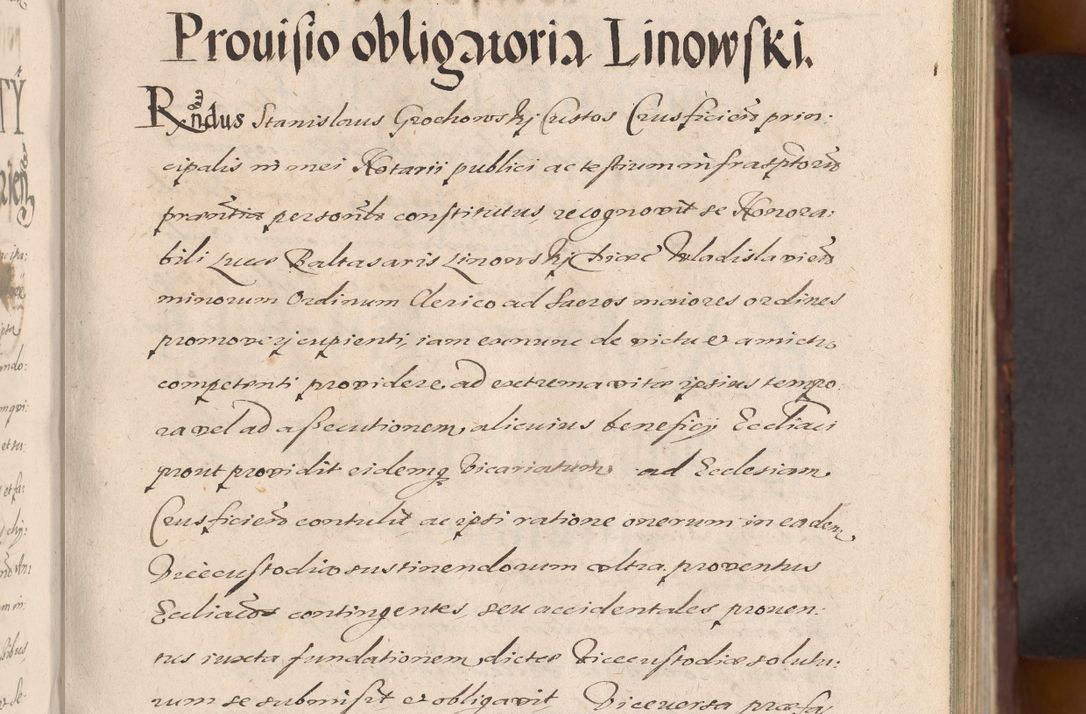 Prouisio obligatoria Linowski.
Rndus Stanislaus Grochowskj Custos Crusficien prin:
cipalis in mei Notarii publici ac testium infrascptorum
prntia personlr constitutus recognovit se Honora:
bili Lucæ Baltasaris Linowskj Diæc Wladislavien
minorum Ordinum Clerico ad Sacros maiores ordines
promoverj cupienti, iam ex nunc de victu et amictu
competenti providere, ad extrema vitæ ipsius tempo:
ra vel ad assecutionem alicuius beneficij Eccliaci
prout providit eidemq Vicariatum ad Ecclesiam
Crusficien contulit ac ipsi ratione onerum in eadem
Vicecustodia sustinendorum ultra proventus
Eccliacos contingentes, seu accidentales proven:
tus iuxta fundationem dictæ Vicecustodiæ solutu:
rum se submisit et obligavit Viceversa præfa